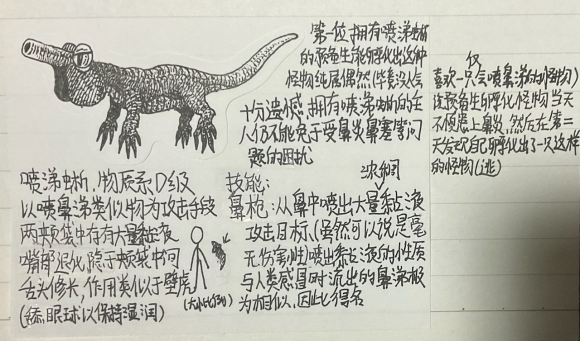 第一位拥有喷涕蜥
的预兆生能孵化出这种
怪物纯属偶然(毕竟没人会
仅
喜欢一只会喷鼻涕的怪物)
该预兆生孵化怪物当天
不慎患上鼻炎,然后在第二
天发现自己孵化出了一只这样
的怪物(逃)
十分遗憾,拥有喷涕蜥的主
人仍不能免于受鼻炎鼻塞等问
题的困扰
喷涕蜥,物质系D级
以喷鼻涕类似物为攻击手段
两夹颊袋中存有大量黏液
嘴部退化,隐于颊袋中间
舌头修长,作用类似于壁虎
(舔眼球以保持湿润)
(大小比例)
技能:
浓稠
鼻枪:从鼻中喷出大量黏液
攻击目标,(虽然可以说是毫
无伤害性)喷出黏液的性质
与人类感冒时流出的鼻涕极
为相似,因此得名